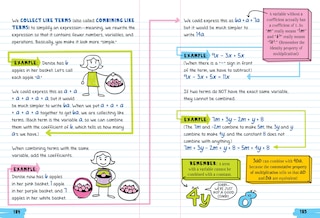 We COLLECT LIKE TERMS (also called COMBINING LIKE
TERMS) to simplify an expression—meaning, we rewrite the
expression so that it contains fewer numbers, variables, and
operations. Basically, you make it look more "simple."
EXAMPLE: Denise has 6
apples in her basket. Let's call
each apple "a."
We could express this as a + a
+ a + a + a + a, but it would
be much simpler to write 6a. When we put a + a +
a + a + a + a together to get 6a, we are collecting like
terms. (Each term is the variable a, so we can combine
them with the coefficient of 6, which tells us how many
a's we have.)
When combining terms with the same
variable, add the coefficients.
EXAMPLE: Denise now has 6 apples
in her pink basket, 1 apple
in her purple basket, and 7
apples in her white basket.
184
We could express this as 6a + a + 7a,
but it would be much simpler to
write 14a.
A variable without a
coefficient actually has
a coefficient of 1. So
"m" really means "1m"
and "k³" really means
"1k³." (Remember the
identity property of
multiplication!)
EXAMPLE: 9x - 3x + 5x
(When there is a "-" sign in front
of the term, we have to subtract.)
9x - 3x + 5x = 11x
If two terms do NOT have the exact same variable,
they cannot be combined.
EXAMPLE: 7m + 3y - 2m + y + 8
(The 7m and -2m combine to make 5m, the 3y and y
combine to make 4y, and the constant 8 does not
combine with anything.)
7m + 3y - 2m + y + 8 = 5m + 4y + 8
REMEMBER: A term
with a variable cannot be
combined with a constant.
4y
185